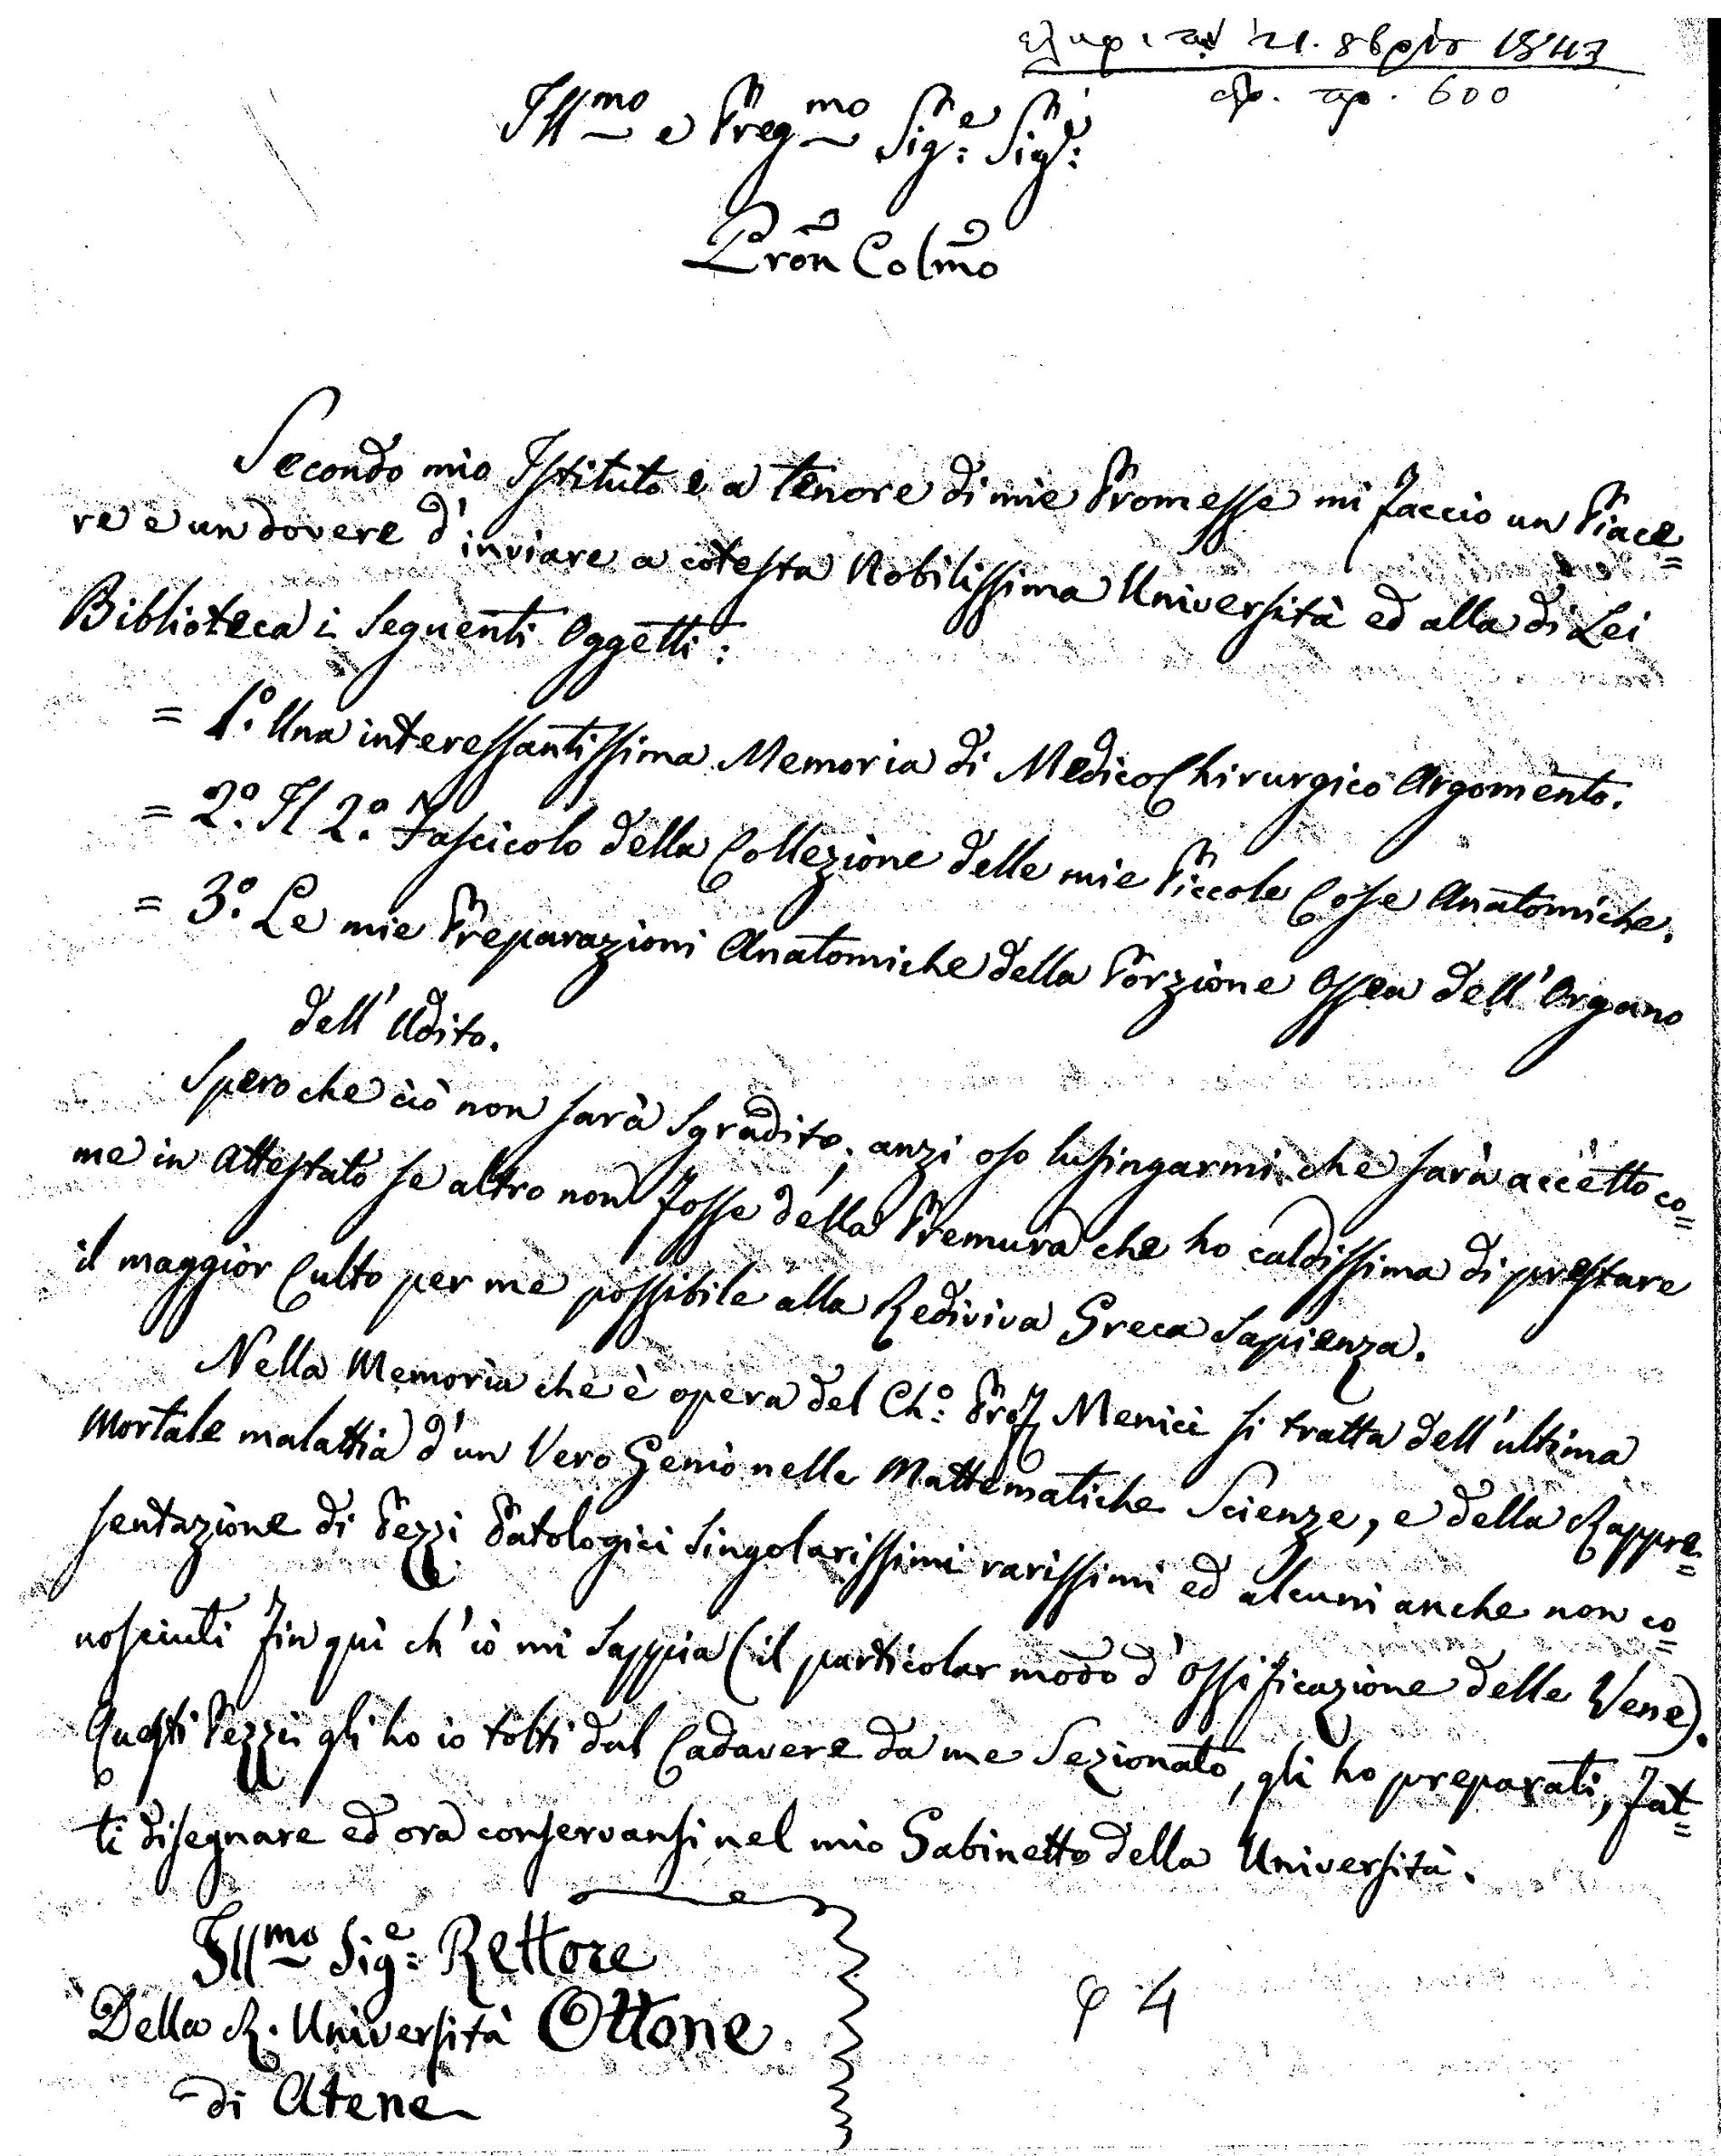 ελήφθ. τὴν 21. 8βρίου 1843
ἀρ. πρ. 600
Illmo e Pregmo Sige: Sigr:
Pron Colmo
Secondo mio Istituto e a tenore di mie Promesse mi faccio un Piace=
re e un dovere d'inviare a cotesta Nobilissima Università ed alla di Lei
Biblioteca i seguenti Oggetti:
= 1.º Una interessantissima Memoria di Medico Chirurgico Argomento.
= 2.º Il 2.º Fascicolo della Collezione delle mie Piccole Cose Anatomiche.
= 3.º Le mie Preparazioni Anatomiche della Porzione Ossea dell'Organo
dell'Udito.
Spero che ciò non sarà sgradito; anzi oso lusingarmi che sarà accetto co=
me in Attestato se altro non fosse della Premura che ho caldissima di prestare
il maggior Culto per me possibile alla Rediviva Greca Sapienza.
Nella Memoria che è opera del Ch.º Prof. Menici si tratta dell'ultima
Mortale malattia d'un Vero Genio nelle Mattematiche Scienze, e della Rappre=
sentazione di Pezzi Patologici Singolarissimi rarissimi ed alcuni anche non co=
nosciuti fin quì ch'io mi sappia (il particolar modo d'ossificazione delle Vene).
Questi Pezzi gli ho io tolti dal Cadavere da me Sezionato, gli ho preparati, fat=
ti disegnare ed ora conservansi nel mio Gabinetto della Università.
Illmo Sige: Rettore
Della R. Università Ottone
di Atene
φ 4